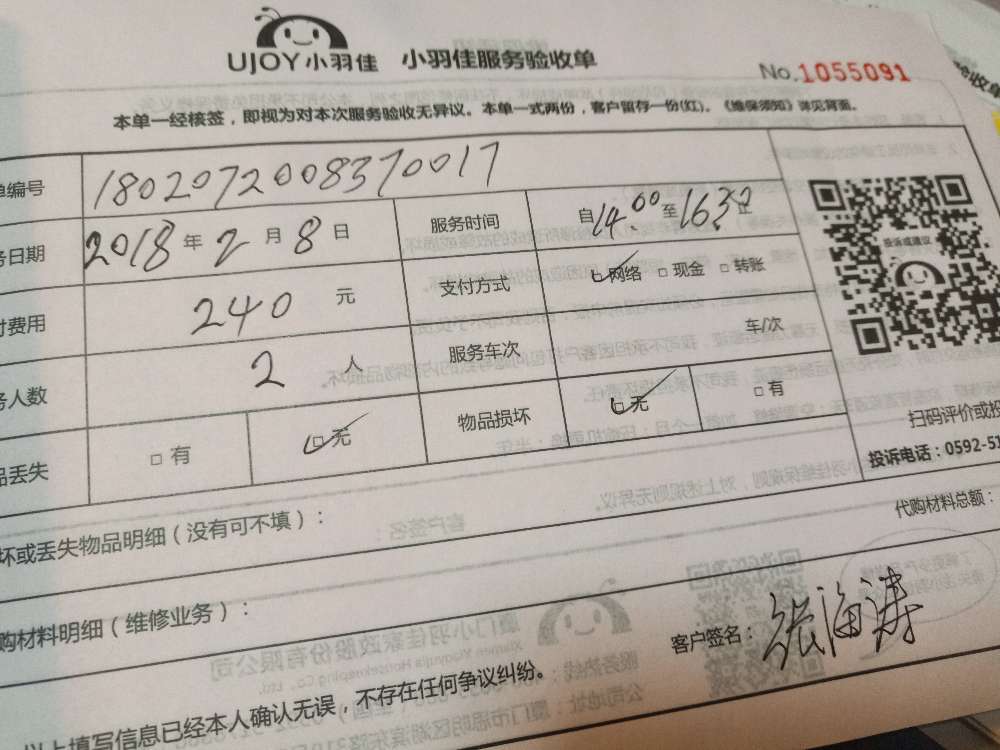 UJOY小羽佳 小羽佳服务验收单
No.1055091
本单一经核签，即视为对本次服务验收无异议。本单一式两份，客户留存一份(红)。《维保须知》详见背面。
单编号 1802072008370017
务日期 2018 年 2 月 8 日 服务时间 自14:00至1630止
付费用 240 元 支付方式 网络 □ 现金 □ 转账
务人数 2 人 服务车次 车/次
品丢失 □ 有 □ 无 物品损坏 无 □ 有
投诉或建议
扫码评价或投
投诉电话：0592-51
坏或丢失物品明细（没有可不填）：
代购材料总额：
购材料明细（维修业务）：
客户签名：张海涛
以上填写信息已经本人确认无误，不存在任何争议纠纷。